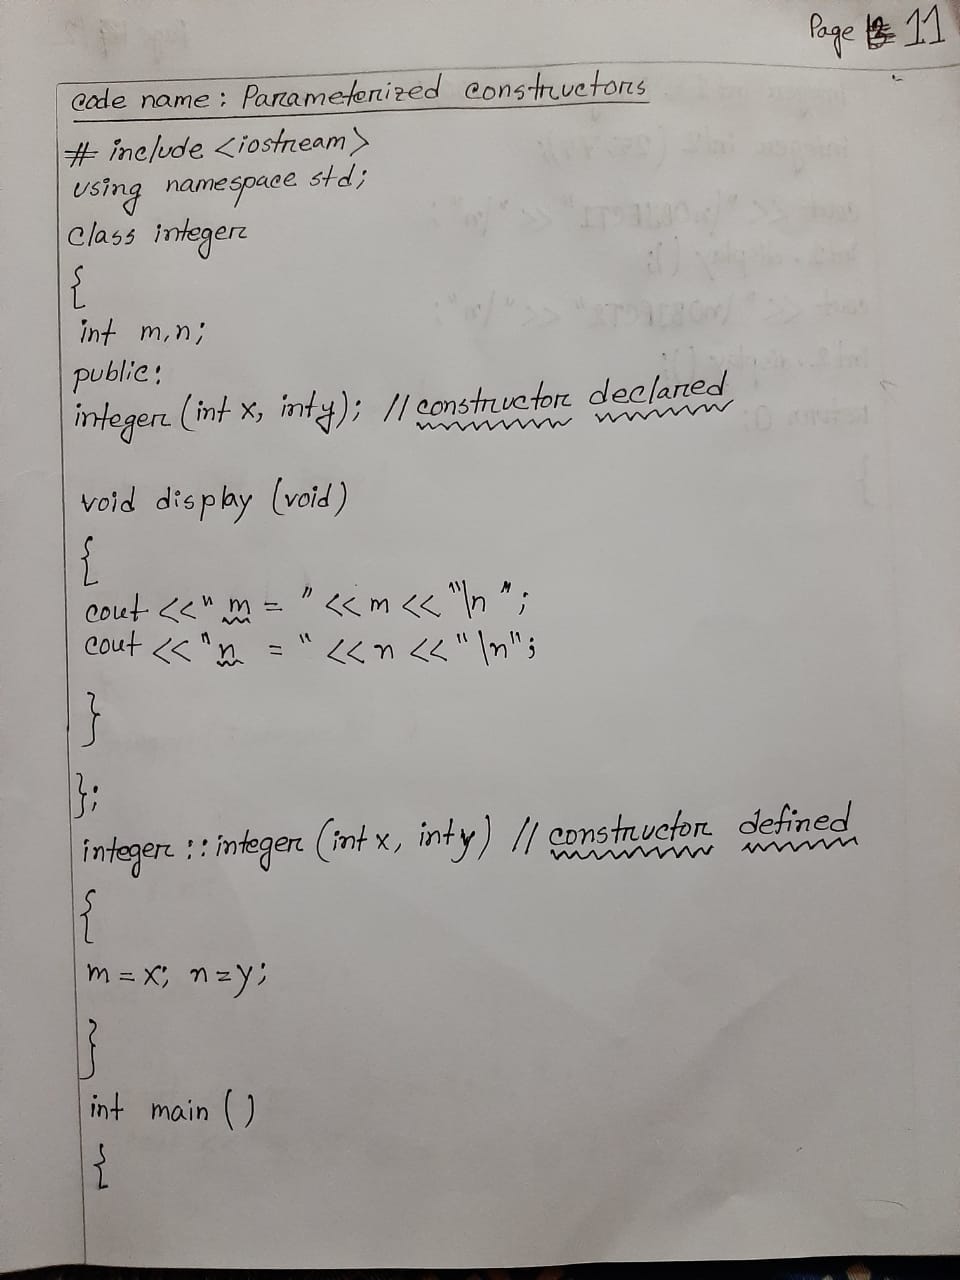 Page 11
code name: Parameterized constructors
# include <iostream>
using namespace std;
class integer
{
int m,n;
public:
integer (int x, int y); // constructor declared
void display (void)
{
cout <<" m = " << m << "\n ";
cout << "n = " << n << " \n";
}
};
integer :: integer (int x, int y) // constructor defined
{
m = x; n=y;
}
int main ( )
{